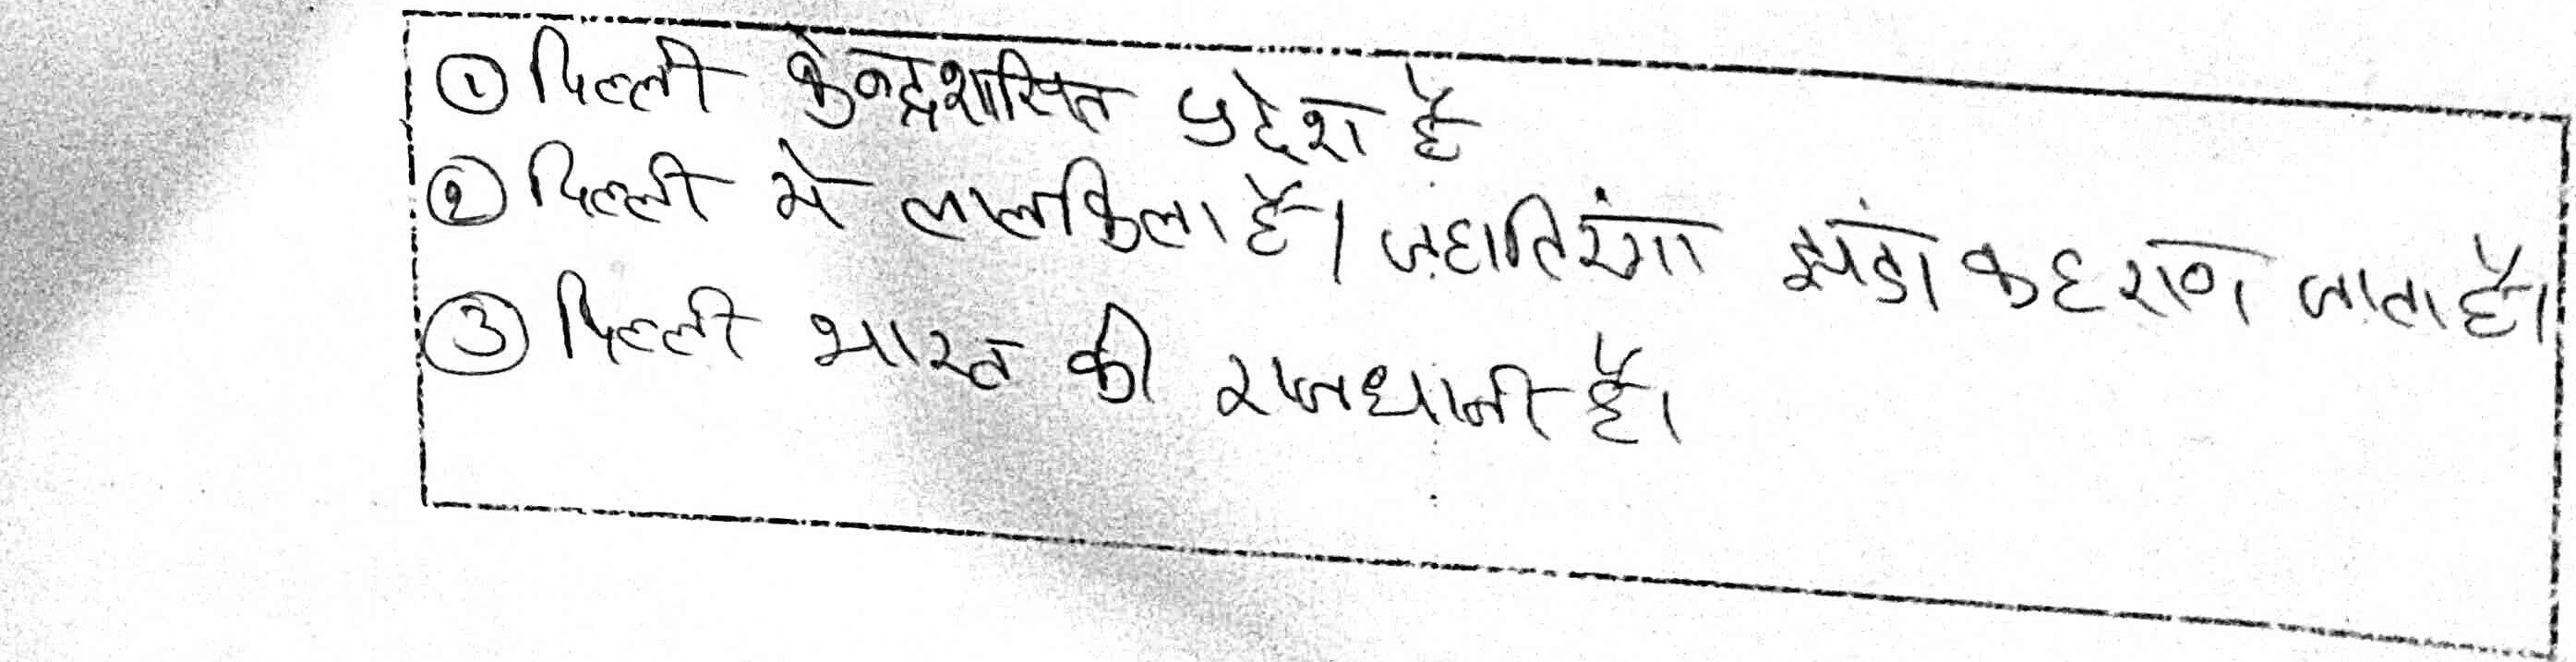 ① दिल्ली केन्द्रशासित प्रदेश है
② दिल्ली मे लालकिला है। जहा तिरंगा झंडा फहराया जाता है।
③ दिल्ली भारत की राजधानी है।